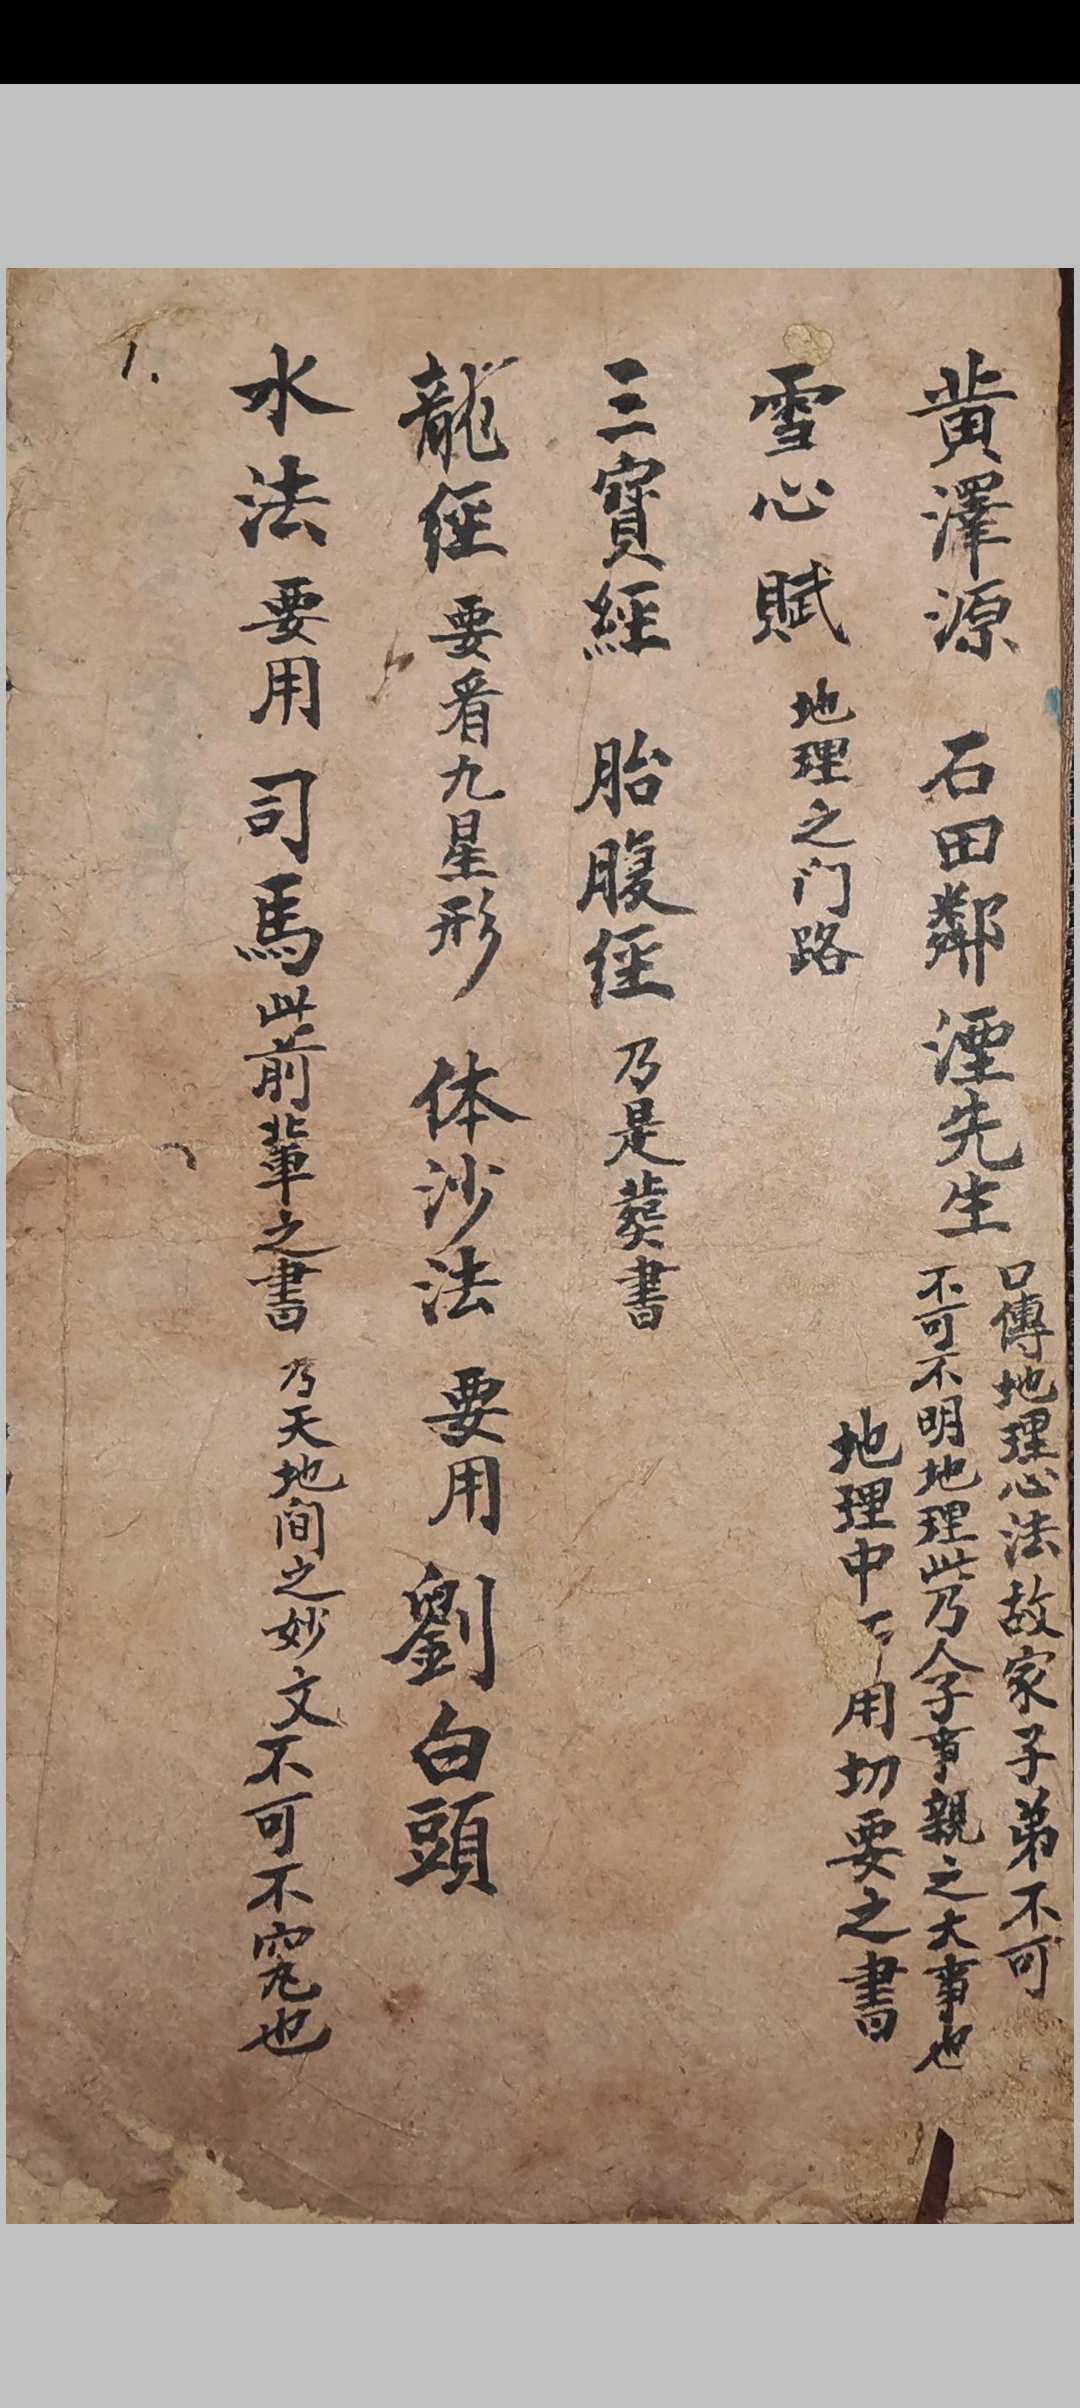 黃澤源 石田鄰 湮先生
口傳地理心法故家子弟不可
不可不明地理此乃人子事親之大事也
地理中 用切要之書
雪心賦 地理之门路
三寳經 胎腹经 乃是葬書
龍经 要看九星形 体沙法 要用 劉白頭
水法 要用 司馬 此前輩之書 乃天地間之妙文不可不究也
1.